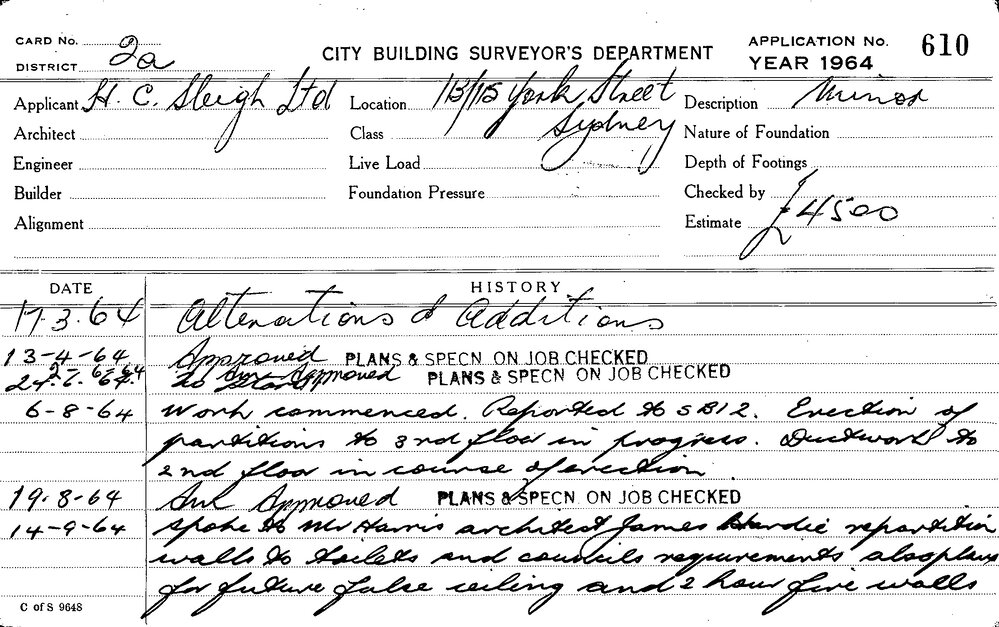 CARD No.
DISTRICT 2a
CITY BUILDING SURVEYOR'S DEPARTMENT
APPLICATION No. 610
YEAR 1964
Applicant H. C. Sleigh Ltd
Location 113/115 York Street
Sydney
Description Minor
Architect
Class
Nature of Foundation
Engineer
Live Load
Depth of Footings
Builder
Foundation Pressure
Checked by
Alignment
Estimate £4500
DATE HISTORY
17.3.64 Alterations & Additions
13-4-64 Approved PLANS & SPECN. ON JOB CHECKED
Approved PLANS & SPECN ON JOB CHECKED
6-8-64 Work commenced. Reported to SB12. Erection of
partitions to 3rd floor in progress. Ductwork to
2nd floor in course of erection
19.8-64 Approved PLANS & SPECN. ON JOB CHECKED
14-9-64 Spoke to Mr Harris architect James Hardie re partition
walls to toilets and councils requirements also plans
for future false ceiling and 2 hour fire walls
C of S 9648